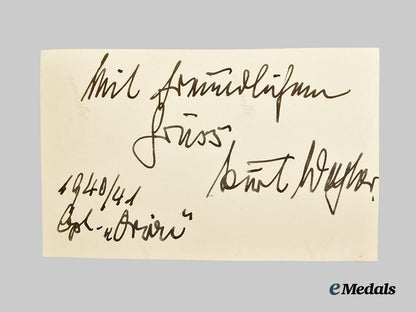 Mit freundlichem
Gruss
Kurt Weyher.
1940/41
Kpt. „Orion“
eMedals